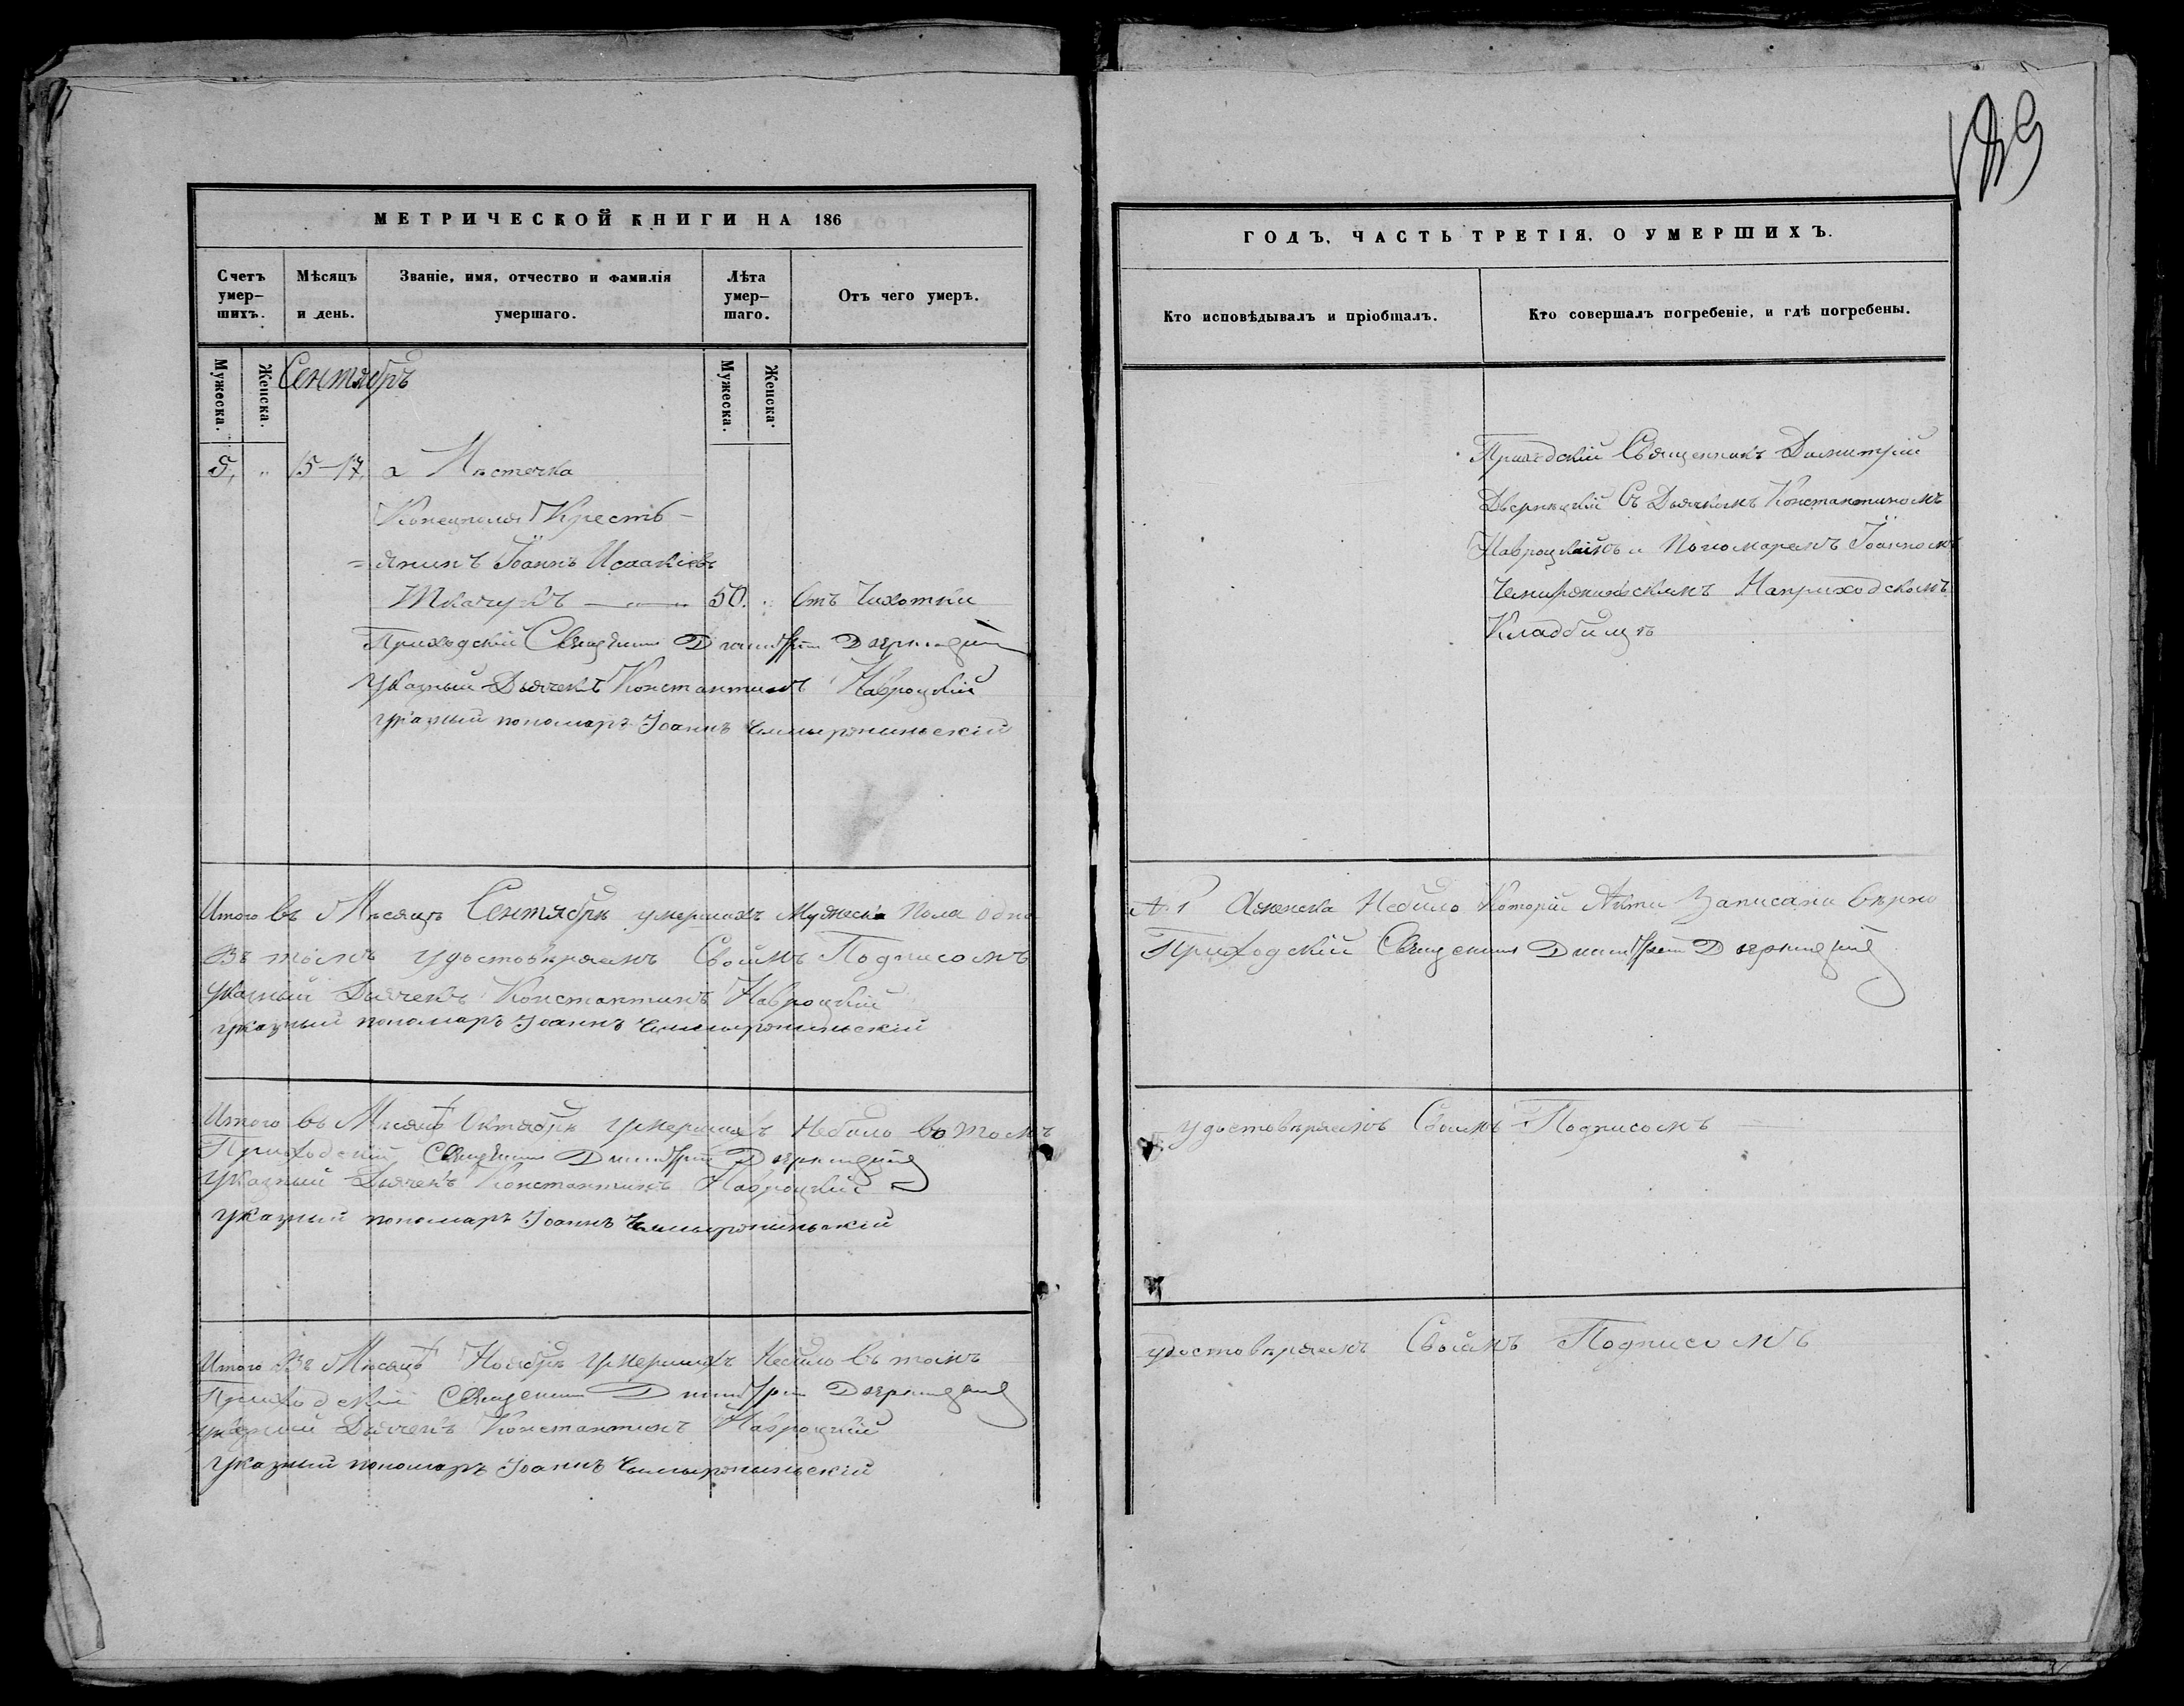 МЕТРИЧЕСКОЙ КНИГИ НА 186
Счетъ умер-шихъ.
Мѣсяцъ и день.
Званіе, имя, отчество и фамилія умершаго.
Лѣта умер-шаго.
Отъ чего умеръ.
Мужеска.
Женска.
Мужеска.
Женска.
Сентябръ
5, „ 15-17 Мѣстечка
Конецполя Кресть-
=янинъ Іоаннъ Исаакіевъ
Ткачукъ 50. Отъ Чихотки
Приходскій Священникъ Димитрій Дверницкій
Указный Дьячекъ Константинъ Навроцкій
указный пономаръ Іоаннъ
Итого въ Мѣсяцѣ Сентябрѣ умершихъ Мужеска Пола одна
Въ томъ удостовѣряемъ Своимъ Подписомъ
Указный Дьячекъ Константинъ Навроцкій
указный пономаръ Іоаннъ
Итого въ Мѣсяцѣ Октябрѣ умершихъ Небило въ томъ
Приходскій Священникъ Димитрій Дверницкій
Указный Дьячекъ Константинъ Навроцкій
Указный пономаръ Іоаннъ
Итого Въ Мѣсяцѣ Ноябрѣ умершихъ Небило въ томъ
Приходскій Священникъ Димитрій Дверницкій
указный Дьячекъ Константинъ Навроцкій
Указный пономаръ Іоаннъ
ГОДЪ, ЧАСТЬ ТРЕТІЯ, О УМЕРШИХЪ.
Кто исповѣдывалъ и пріобщалъ.
Кто совершалъ погребеніе, и гдѣ погребены.
Приходскій Священникъ Димитрій
Дверницкій Съ Дьячкомъ Константиномъ
Навроцкимъ и Пономаремъ Іоанномъ
Наприходскомъ
Кладбищѣ
№ 1 Аженска Небило Которіи Акти Записани вѣрно
Приходскій Священникъ Димитрій Дверницкій
удостовѣряемъ Своимъ Подписомъ
удостовѣряемъ Своимъ Подписомъ